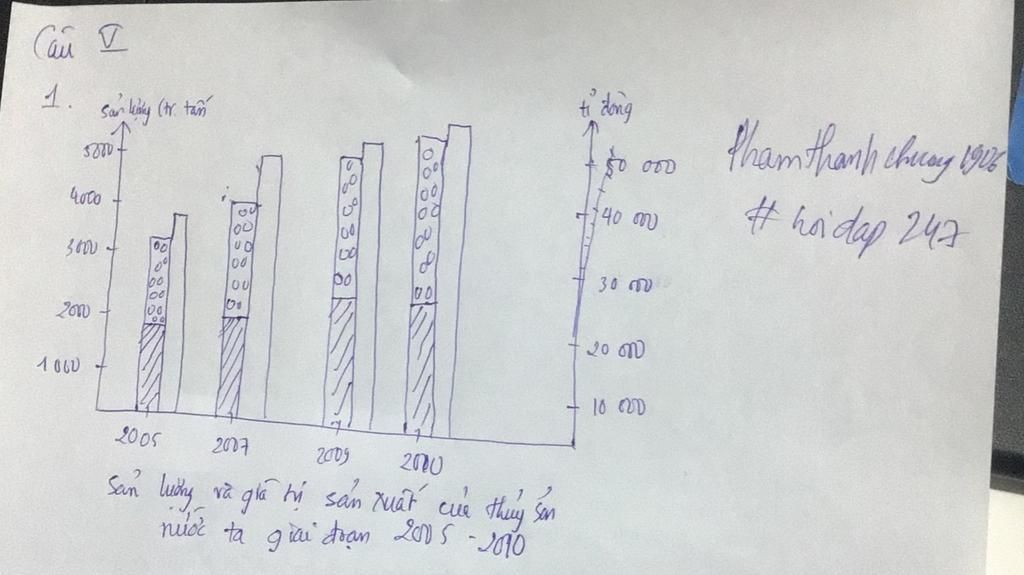 Câu V
1.
sản lượng (tr. tấn
tỉ đồng
5000
4000
3000
2000
1000
50 000
40 000
30 000
20 000
10 000
2005
2007
2009
2010
Sản lượng và giá trị sản xuất của thủy sản
nước ta giai đoạn 2005 - 2010
Phamthanhchuong1906
# hoidap 247